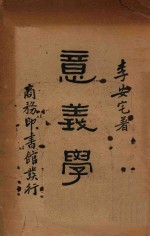 李安宅著
意義學
商務印書館發行